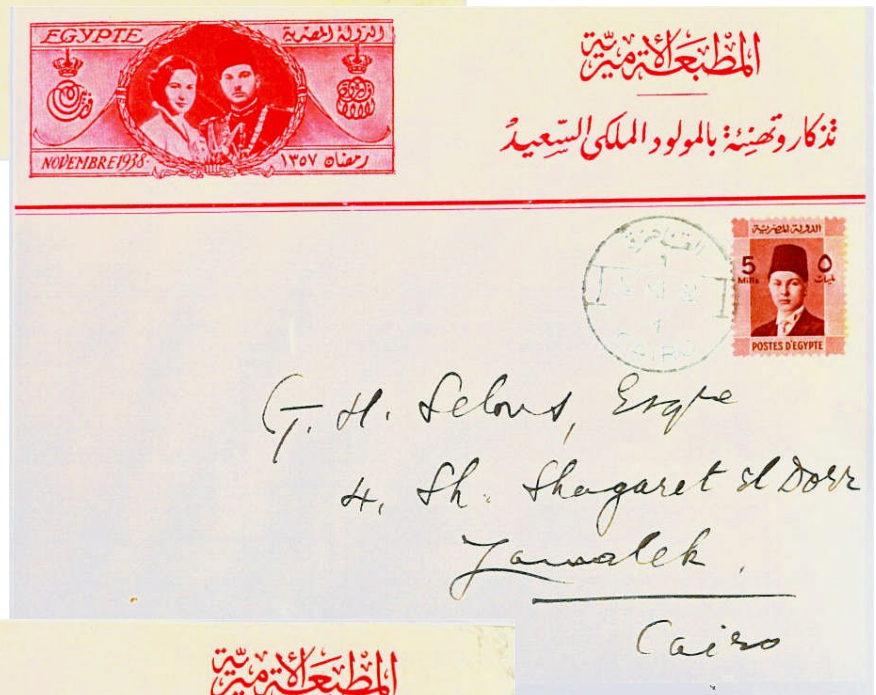 EGYPTE الدولة المصرية
NOVEMBRE 1938 رمضان ١٣٥٧
المطبعة الأميرية
تذكار وتهنئة بالمولود الملكى السّعيد
القاهرة
1
1
CAIRO
الدولة المصرية
5 ٥
Mills مليمات
POSTES D'EGYPTE
G. H. Selous, Esqre
4, Sh. Shagaret el Dorr
Zamalek.
Cairo
المطبعة الأميرية